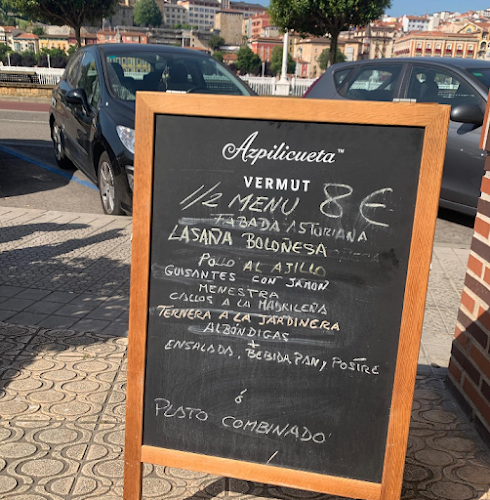 Azpilicueta™
VERMUT
1/2 MENU 8€
FABADA ASTURIANA
LASAÑA BOLOÑESA
POLLO AL AJILLO
GUISANTES CON JAMON
MENESTRA
CALLOS A LA MADRILEÑA
TERNERA A LA JARDINERA
ALBÓNDIGAS
+
ENSALADA, BEBIDA PAN y POSTRE
ó
PLATO COMBINADO